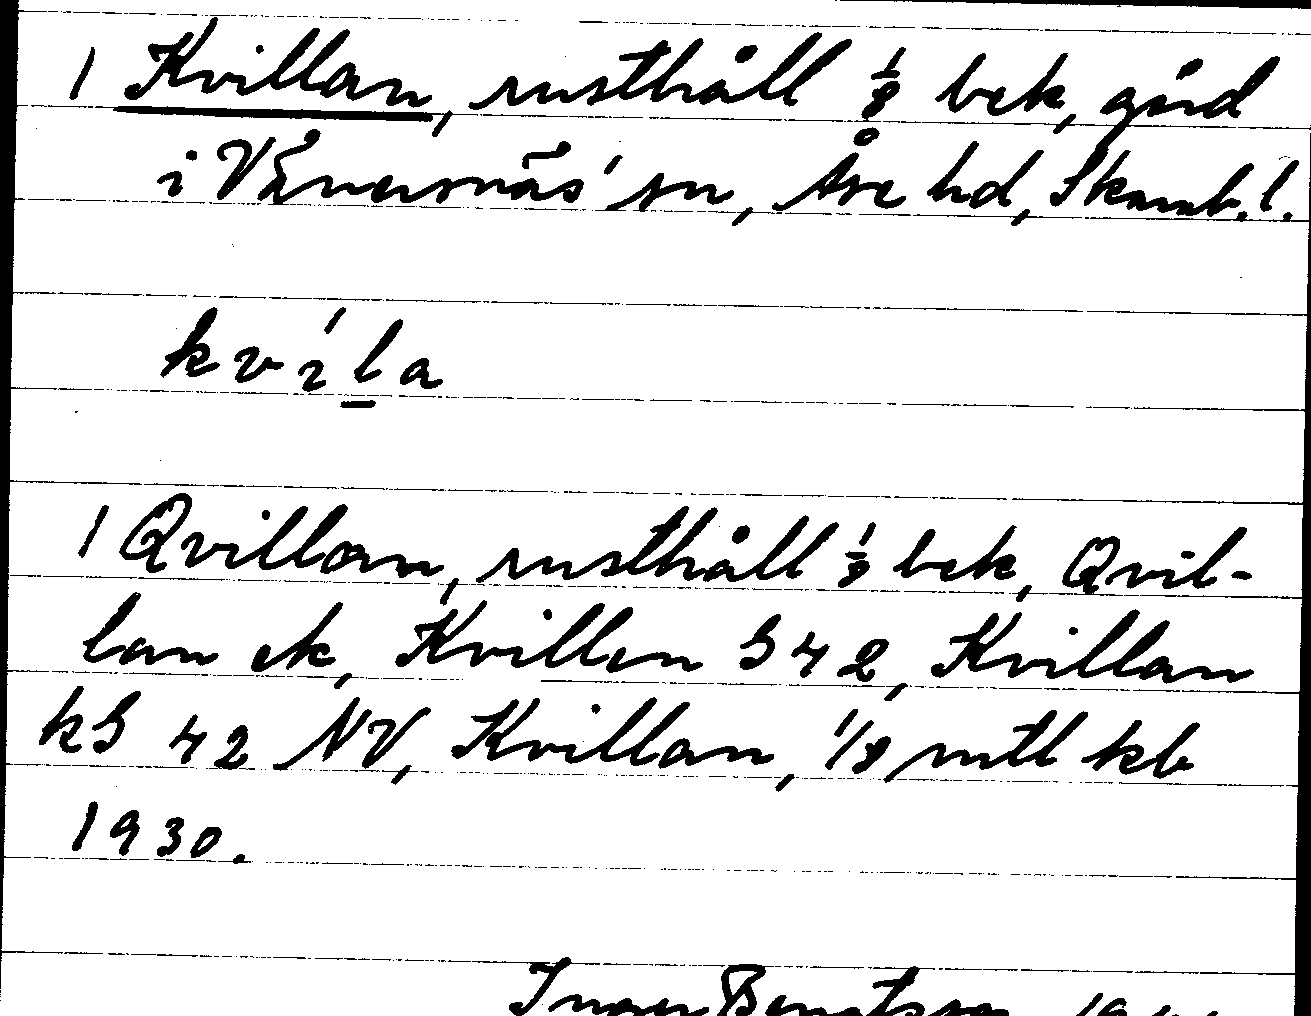 1 Kvillan, rusthåll 1/8 bek, gård
i Vänersnäs' sn, Åse hd, Skarab. l.
kvíla
1 Qvillan, rusthåll 1/8 bek, Qvil-
lan ek, Kvillen G 42, Kvillan
kG 42 NV, Kvillan, 1/8 mtl kb
1930.
Bengtsson